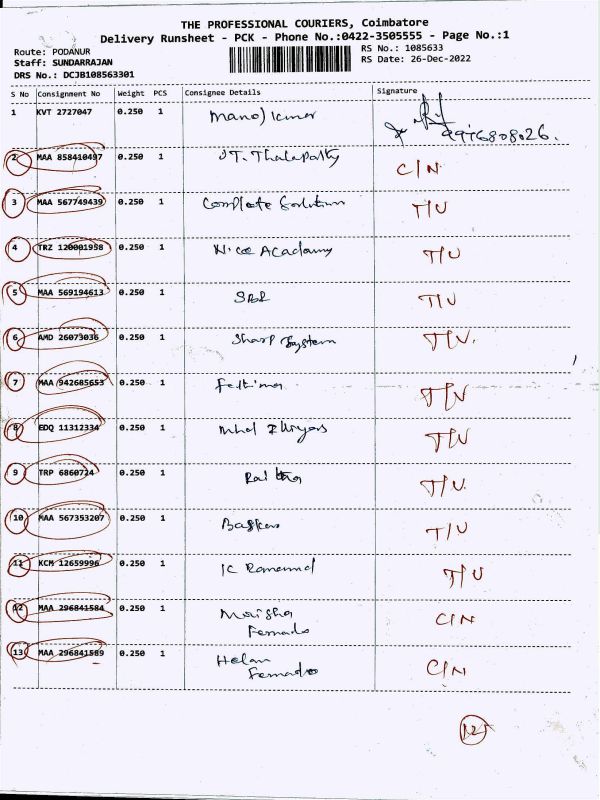 THE PROFESSIONAL COURIERS, Coimbatore
Delivery Runsheet - PCK - Phone No.:0422-3505555 - Page No.:1
Route: PODANUR RS No.: 1085633
Staff: SUNDARRAJAN RS Date: 26-Dec-2022
DRS No.: DCJB108563301
S No Consignment No Weight PCS Consignee Details Signature
1 KVT 2727047 0.250 1 Manoj Kumar 9976808026.
2 MAA 858410497 0.250 1 JT. Thalapathy C/N
3 MAA 567749439 0.250 1 Complete Solution T/U
4 TRZ 120001958 0.250 1 Nice Academy T/U
5 MAA 569194613 0.250 1 T/U
6 AMD 26073036 0.250 1 Sharp System T/U.
7 MAA 942685653 0.250 1 T/U
8 EDQ 11312334 0.250 1 T/U
9 TRP 6860724 0.250 1 T/U.
10 MAA 567353207 0.250 1 T/U
11 KCM 12659996 0.250 1 T/U
12 MAA 296841584 0.250 1 C/N
Fernado
13 MAA 296841589 0.250 1 Helan C/N
Fernado
12